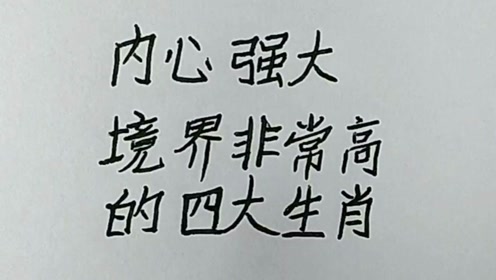 内心强大
境界非常高
的四大生肖